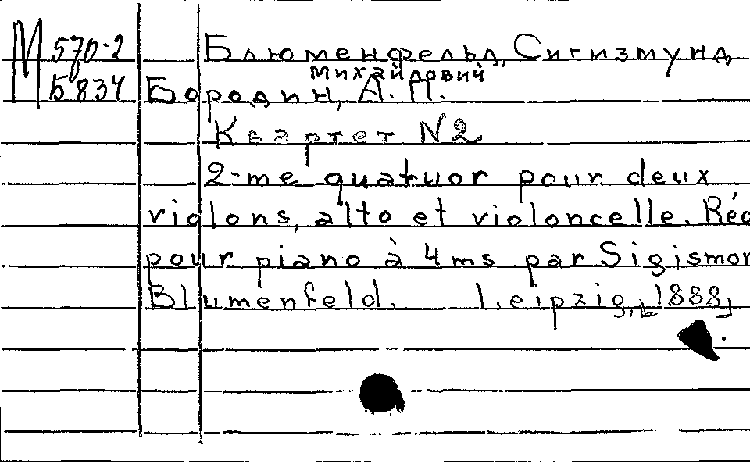 М 570-2
Б834
Блюменфельд, Сигизмунд
Михайлович
Бородин, А. П.
Квартет N2
2-me quatuor pour deux
violons, alto et violoncelle. Réd
pour piano à 4 ms par Sigismon
Blumenfeld. Leipzig, 1888,